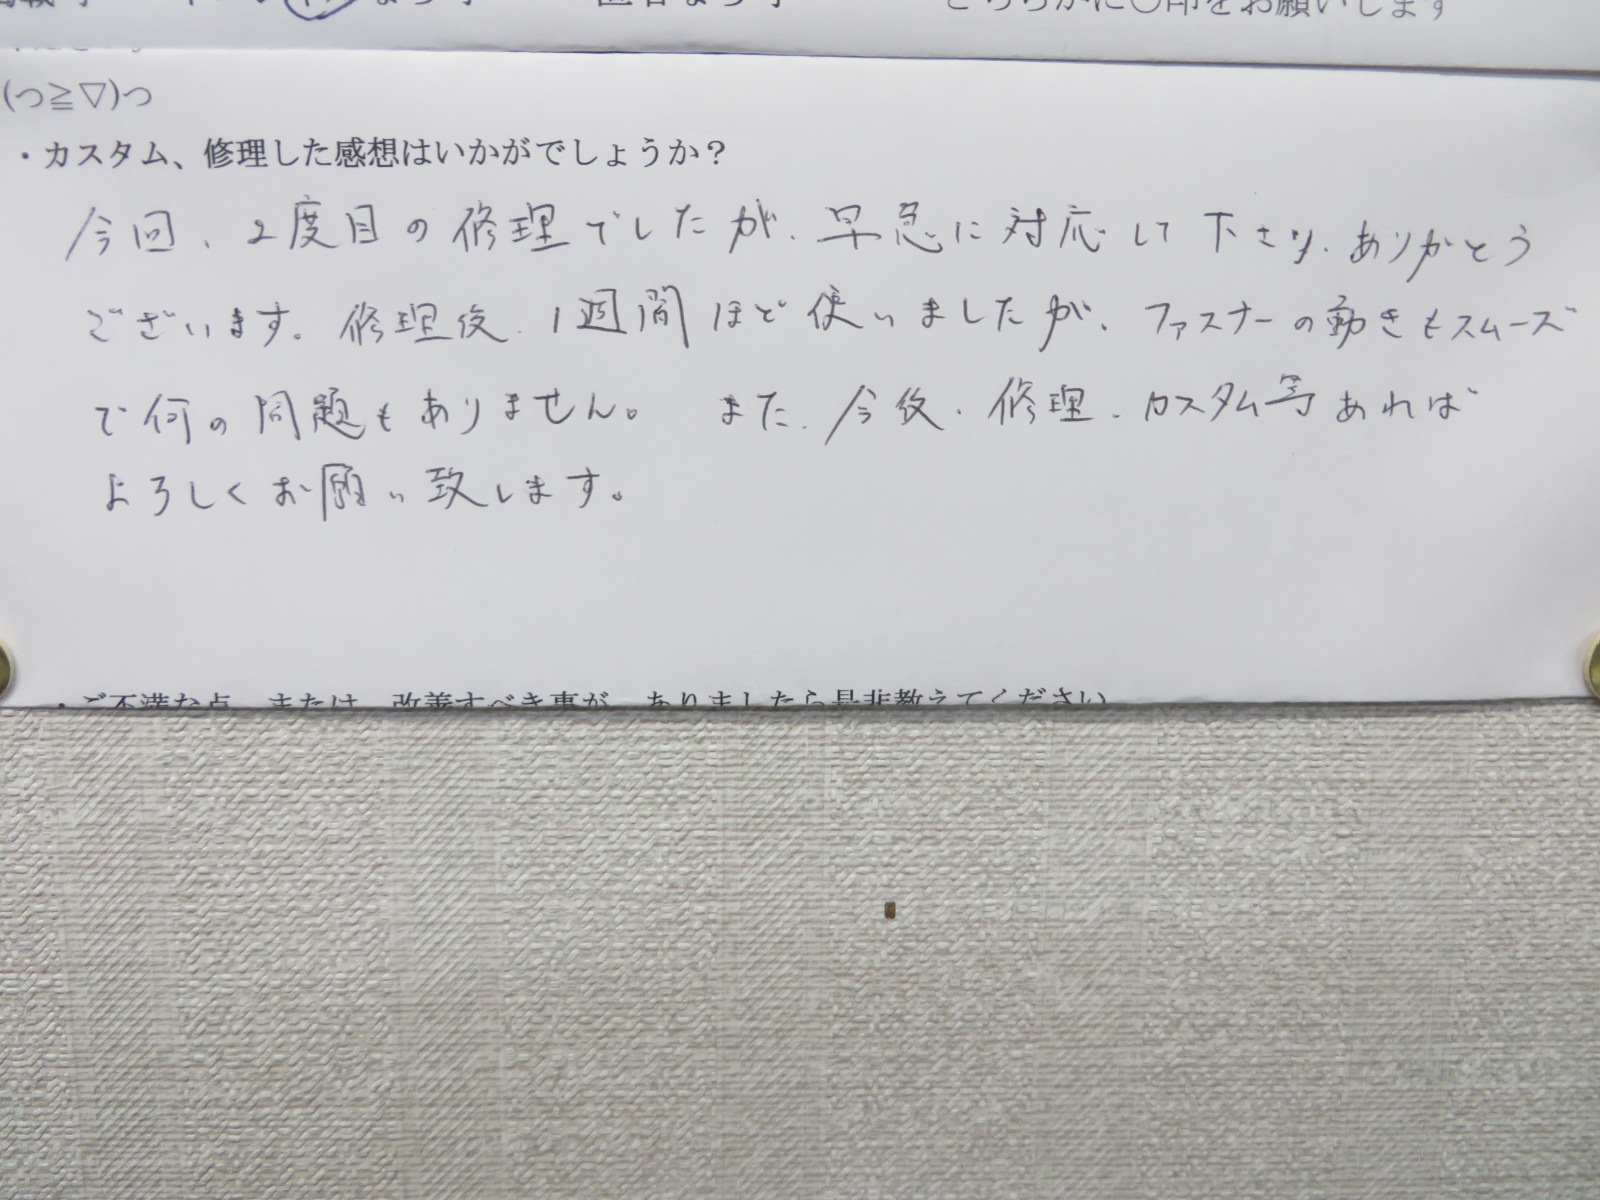 どちらかに○印をお願いします
(つ≧▽)つ
・カスタム、修理した感想はいかがでしょうか？
今回、2度目の修理でしたが、早急に対応して下さり、ありがとう
ございます。修理後、1週間ほど使いましたが、ファスナーの動きもスムーズ
で何の問題もありません。 また、今後、修理、カスタム等あれば
よろしくお願い致します。
・ご不満な点、または、改善すべき事が、ありましたら是非教えてください